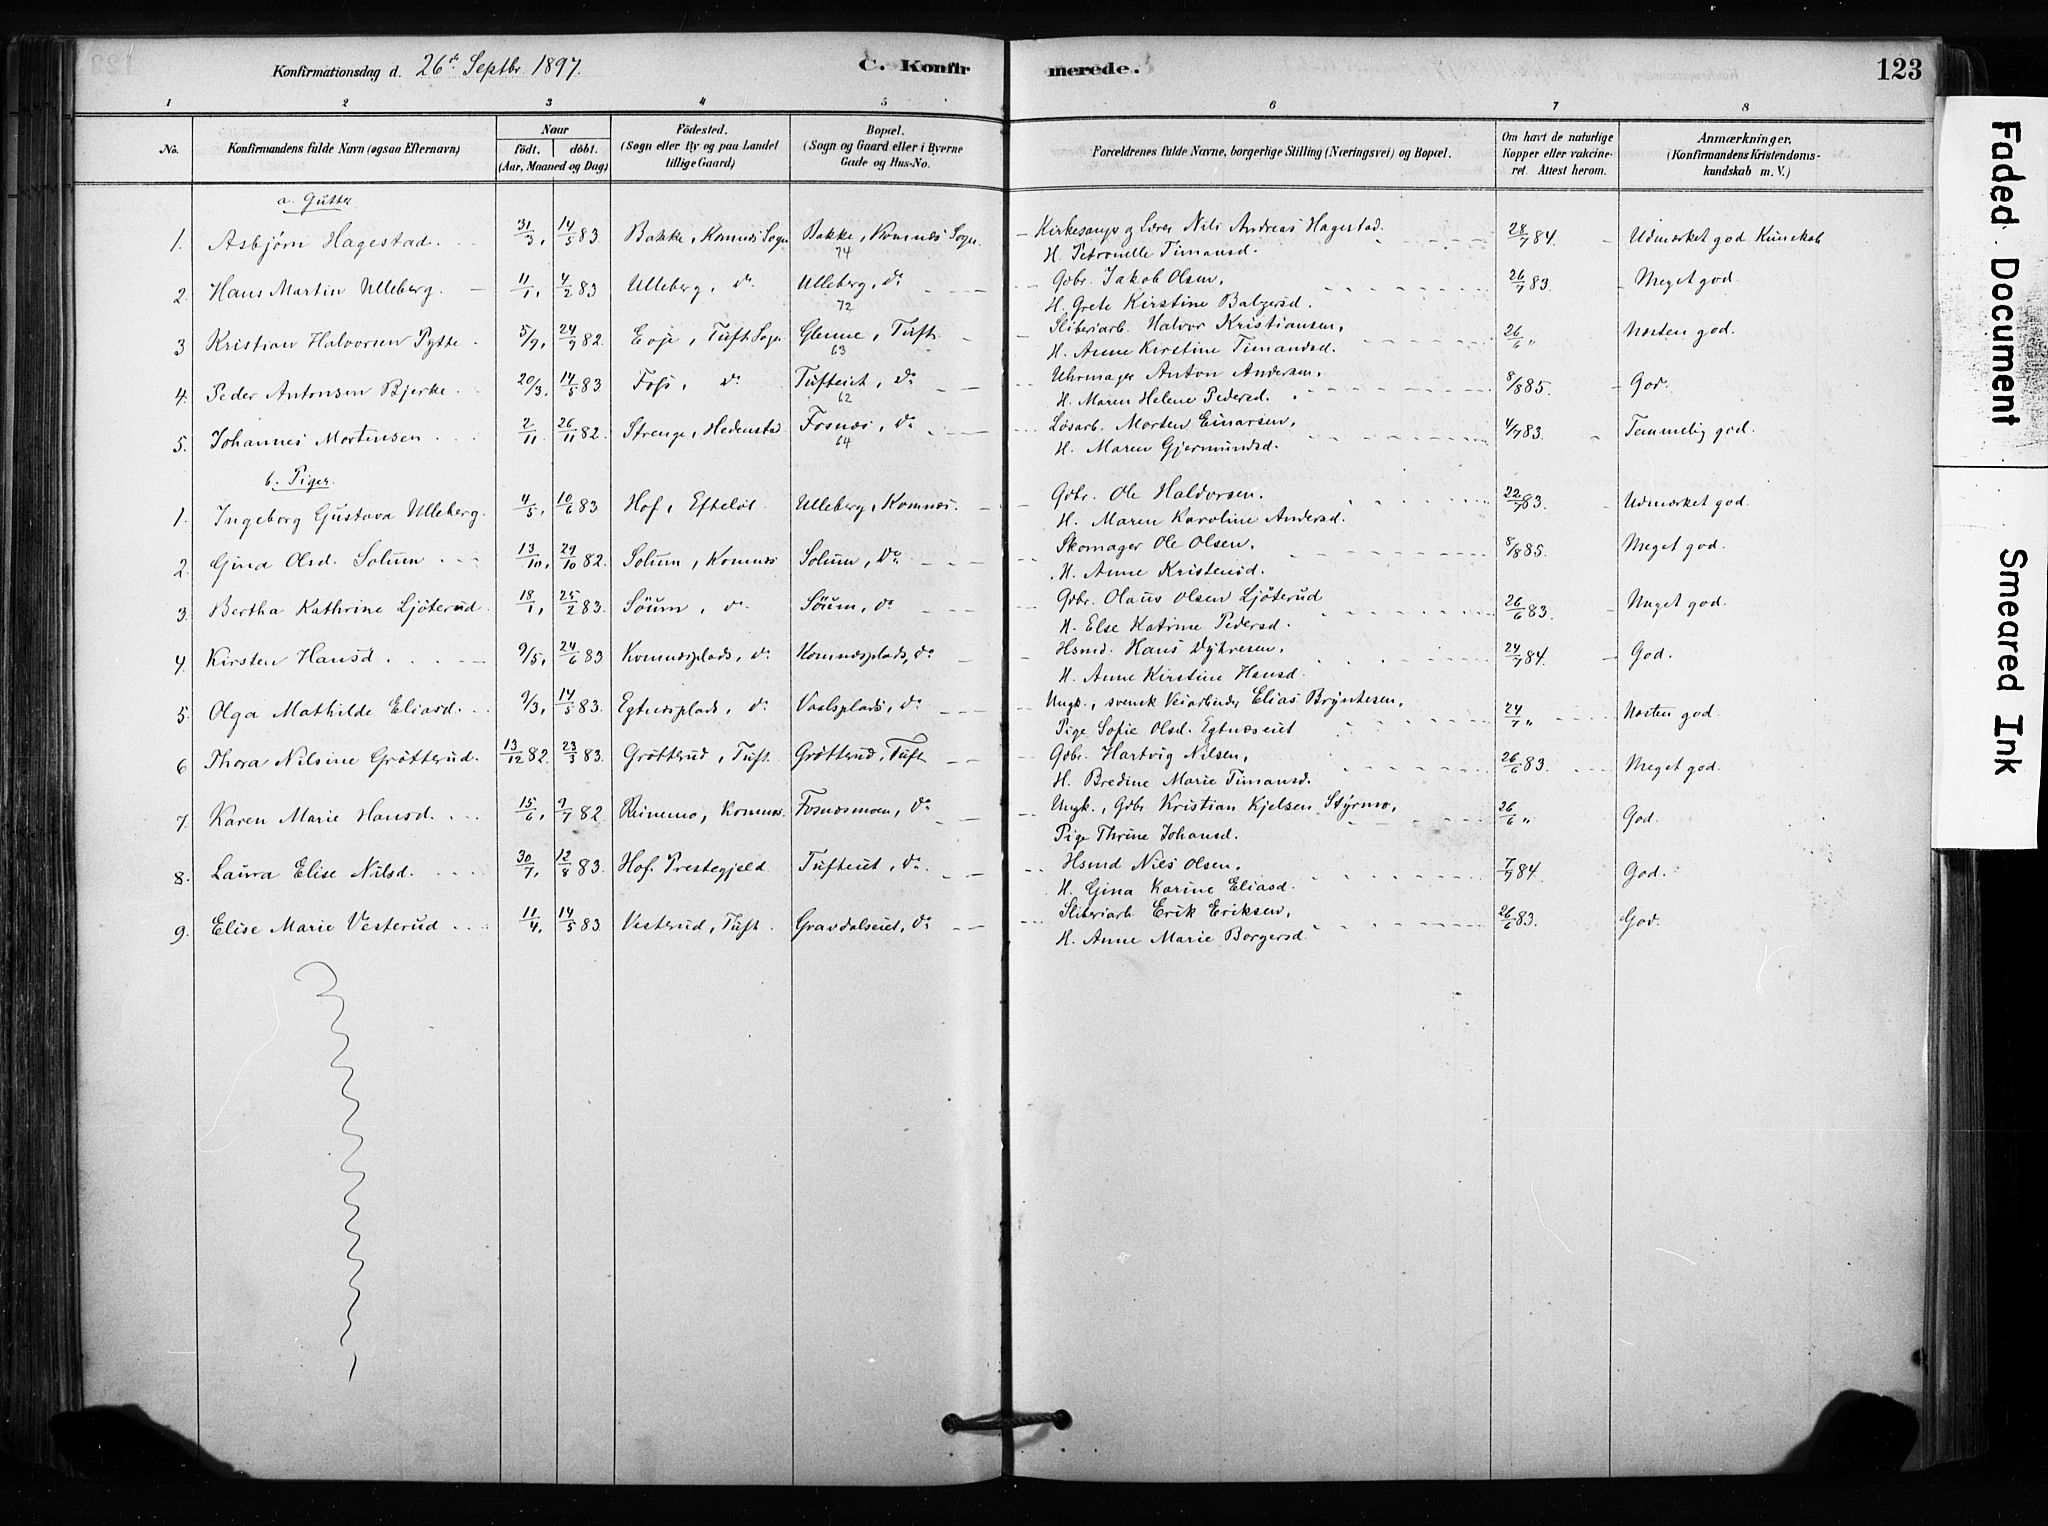 Konfirmationsdag d. 26de Septbr. 1897. C. Konfirmerede. 123
1 2 3 4 5 6 7 8
No. Konfirmandens fulde Navn (ogsaa Efternavn) Naar født. døbt. (Aar, Maaned og Dag) Födested. (Sogn eller By og paa Landet tillige Gaard) Bopæl. (Sogn og Gaard eller i Byerne Gade og Hus-No. Forældrenes fulde Navne, borgerlige Stilling (Næringsvei) og Bopæl. Om havt de naturlige Kopper eller vakcineret. Attest herom. Anmærkninger, (Konfirmandens Kristendomskundskab m. V.)
a. Gutter.
1. Asbjørn Hagestad. 31/3, 14/5 83. Bakke, Komnæs Sogn Bakke, Komnæs Sogn. 74 Kirkesanger og Lærer Nils Andreas Hagestad. 28/7 84. Udmærket god Kunskab
H. Petronelle Timansd.
2. Hans Martin Ulleberg. 11/1, 4/2 83 Ulleberg, do Ulleberg, do 72 Gdbr. Jakob Olsen, 26/7 83. Meget god.
H. Grete Kirstine Balzersd.
3 Kristian Halvorsen Pytte. 5/9, 24/9 82. Evje, Tuft Sogn Glenne, Tuft. 63 Sliberiarb. Halvor Kristiansen, 26/6 " Næsten god.
H. Anne Kirstine Timandsd.
4. Peder Antonsen Bjerke. 20/3, 14/5 83 Foss, do Tufteiet, do 62 Uhrmager Anton Andersen, 8/8 85. God.
H. Maren Helene Pedersd.
5. Johannes Mortensen 2/11, 26/11 82. Strenge, Hedenstad Fosnæs, do 64 Løsarb. Morten Einarsen, 4/7 83. Temmelig god.
H. Maren Gjermundsd.
b. Piger.
1. Ingeborg Gustava Ulleberg. 4/5, 10/6 83 Hof, Efteløt. Ulleberg, Komnæs. Gdbr. Ole Haldorsen. 22/7 83. Udmærket god.
H. Maren Karoline Andersd.
2. Gina Olsd. Solum 13/10, 29/10 82. Solum, Komnæs Solum, do Skomager Ole Olsen, 8/8 85. Meget god.
H. Anne Kristensd.
3. Bertha Kathrine Ljøterud. 18/1, 25/2 83. Søum, do Søum, do Gdbr. Olaus Olsen Ljøterud 26/6 83. Meget god.
H. Else Katrine Pedersd.
4. Kirsten Hansd. 9/5, 24/6 83 Komnæsplads, do Komnæsplads, do Hsmd. Hans Dyhresen, 24/7 84. God.
H. Anne Kirstine Hansd.
5. Olga Mathilde Eliasd. 9/3, 14/5 83. Egtnesplads, do Vaalsplads, do Ungk., svensk Veiarbeider Elias Bryntesen, 24/7 " Næsten god.
Pige Sofie Olsd. Egtnæseiet
6 Thora Nilsine Grøtterud. 13/12 82. 23/3 83. Grøtterud, Tuft. Grøtterud, Tuft Gdbr. Hartvig Nilsen, 26/6 83. Meget god.
H. Bredine Marie Timansd.
7. Karen Marie Hansd. 15/6, 9/7 82. Reinemo, Komnæs. Fosnæsmoen, do Ungk., Gdbr. Kristian Kjelsen Styrmo, 26/6 " God.
Pige Thrine Johansd.
8. Laura Elise Nilsd. 30/7, 12/8 83. Hof Prestegjeld Tufteiet, do Hsmd Nils Olsen, 7/9 84. God.
H. Gina Karine Eliasd.
9. Elise Marie Vesterud 11/4, 14/5 83. Vesterud, Tuft. Gravdalseiet, do Sliberiarb. Erik Eriksen, 26/6 83. God.
H. Anne Marie Borgersd.
Faded Document
Smeared Ink